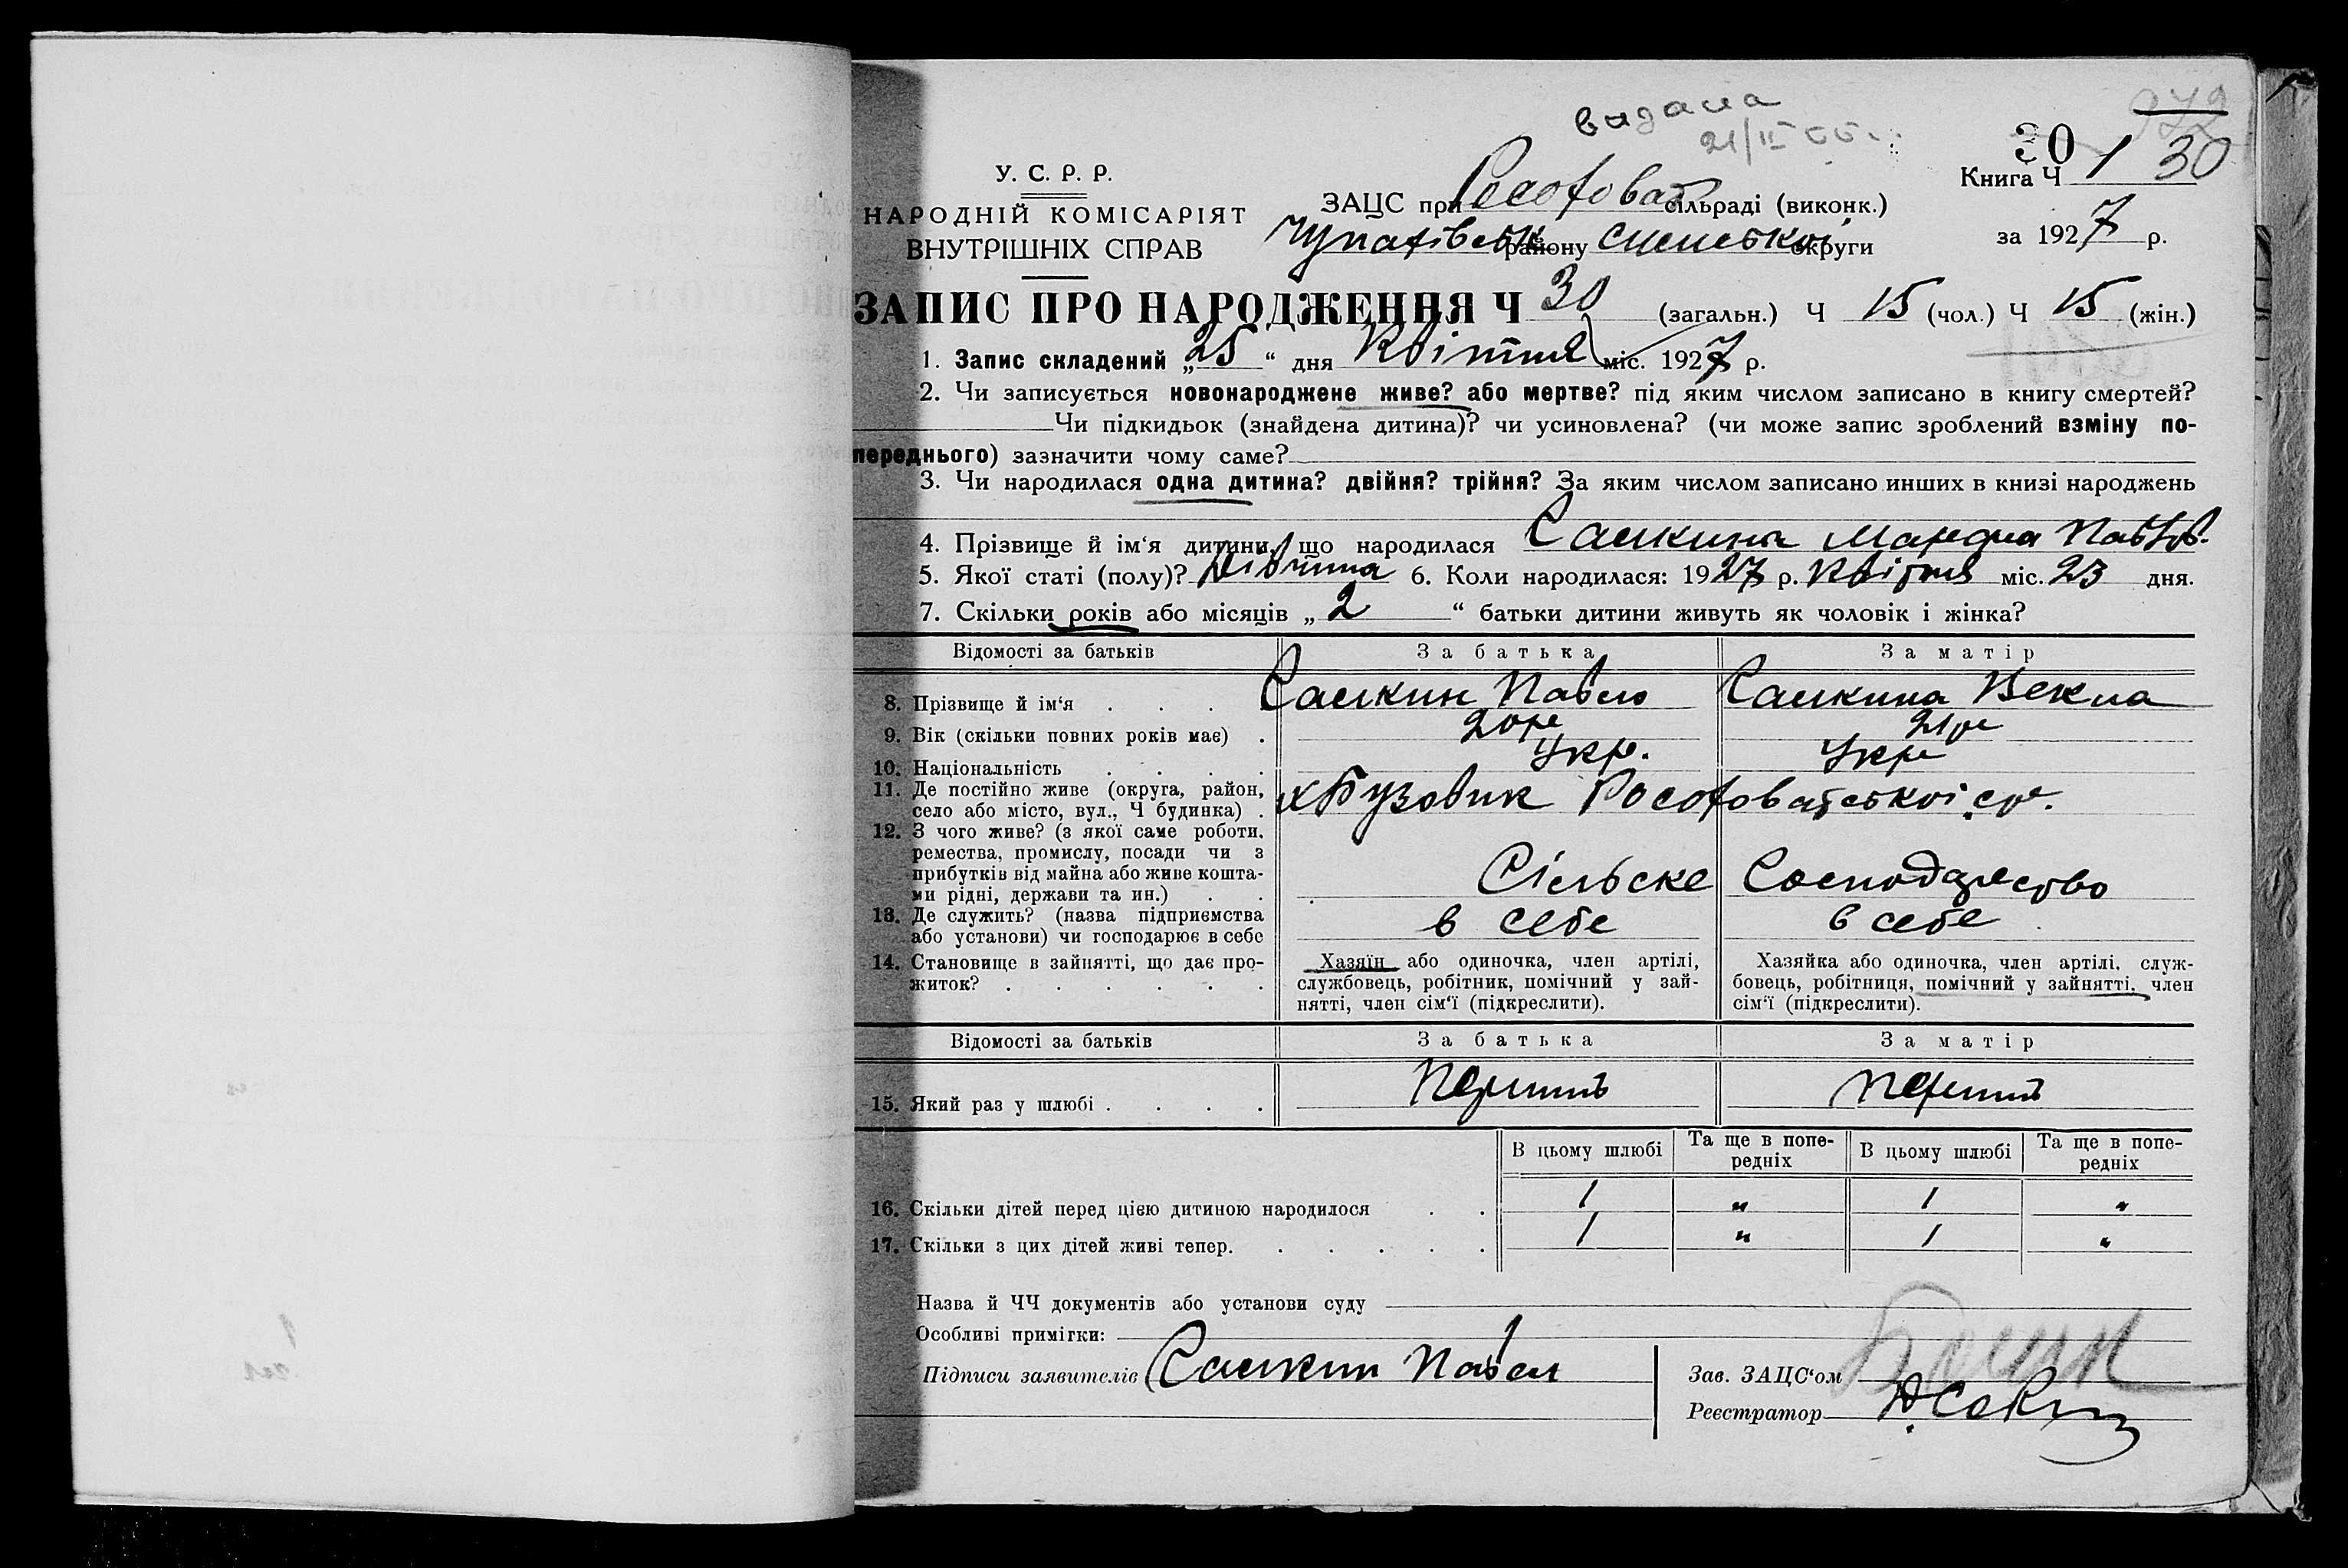 видана
21/II 55 г.
30
1 30
У. С. Р. Р.
НАРОДНІЙ КОМІСАРІЯТ
ВНУТРІШНІХ СПРАВ
ЗАЦС при сільраді (виконк.)
району округи
Книга Ч
за 1927 р.
ЗАПИС ПРО НАРОДЖЕННЯ Ч 30 (загальн.) Ч 15 (чол.) Ч 15 (жін.)
1. Запис складений „25“ дня Квітня міс. 1927 р.
2. Чи записується новонароджене живе? або мертве? під яким числом записано в книгу смертей?
Чи підкидьок (знайдена дитина)? чи усиновлена? (чи може запис зроблений взміну по-
переднього) зазначити чому саме?
3. Чи народилася одна дитина? двійня? трійня? За яким числом записано инших в книзі народжень
4. Прізвище й ім‘я дитини, що народилася
5. Якої статі (полу)? Дівчина 6. Коли народилася: 1927 р. Квітня міс. 23 дня.
7. Скільки років або місяців „2“ батьки дитини живуть як чоловік і жінка?
Відомості за батьків За батька За матір
8. Прізвище й ім‘я . . . Павло
9. Вік (скільки повних років має) . 20 р 21 р
10. Національність . . . . Укр. Укр
11. Де постійно живе (округа, район,
село або місто, вул., Ч будинка) . х Бузовик
12. З чого живе? (з якої саме роботи,
ремества, промислу, посади чи з
прибутків від майна або живе кошта-
ми рідні, держави та ин.) . . Сільське Господарство
13. Де служить? (назва підприємства
або установи) чи господарює в себе в себе в себе
14. Становище в зайнятті, що дає про-
житок? . . . . . .
Хазяїн або одиночка, член артілі,
службовець, робітник, помічний у зай-
нятті, член сім‘ї (підкреслити).
Хазяйка або одиночка, член артілі, служ-
бовець, робітниця, помічний у зайнятті, член
сім‘ї (підкреслити).
Відомості за батьків За батька За матір
15. Який раз у шлюбі . . . . Перший Перший
В цьому шлюбі Та ще в попе-
редніх В цьому шлюбі Та ще в попе-
редніх
16. Скільки дітей перед цією дитиною народилося . . 1 „ 1 „
17. Скільки з цих дітей живі тепер. . . . . . 1 „ 1 „
Назва й ЧЧ документів або установи суду
Особливі примігки:
Підписи заявителів
Зав. ЗАЦС‘ом
Реєстратор